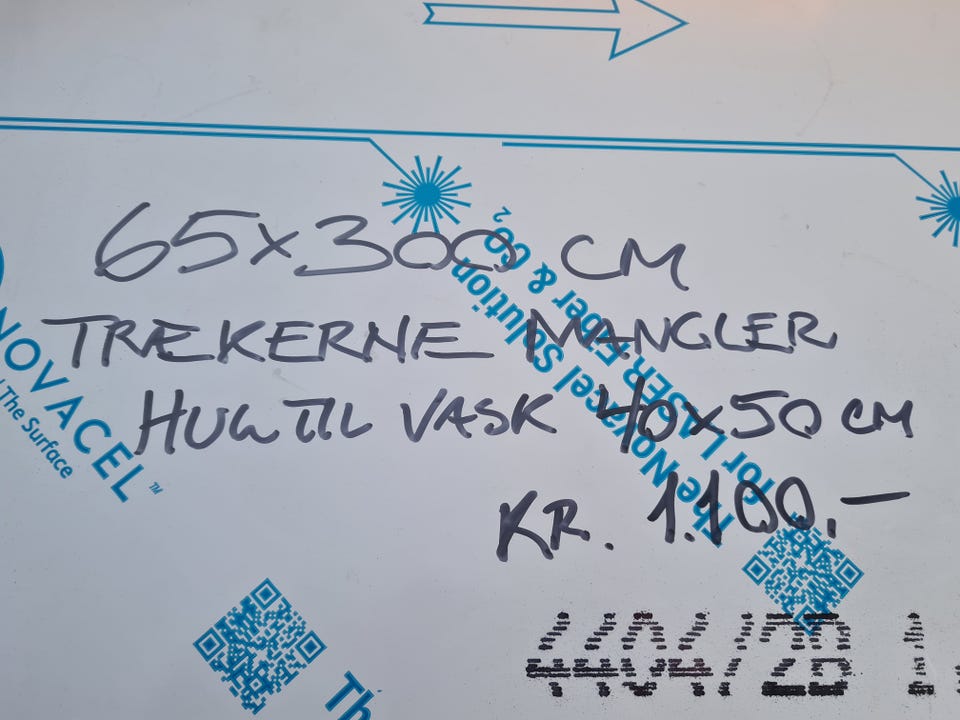 65x300 CM
TRÆKERNE MANGLER
HUL TIL VASK 40x50 CM
KR. 1.100,-
NOVACEL™
The Surface
The Novacel Solution
for LASER Fiber & CO2
Th
4404/2B 1